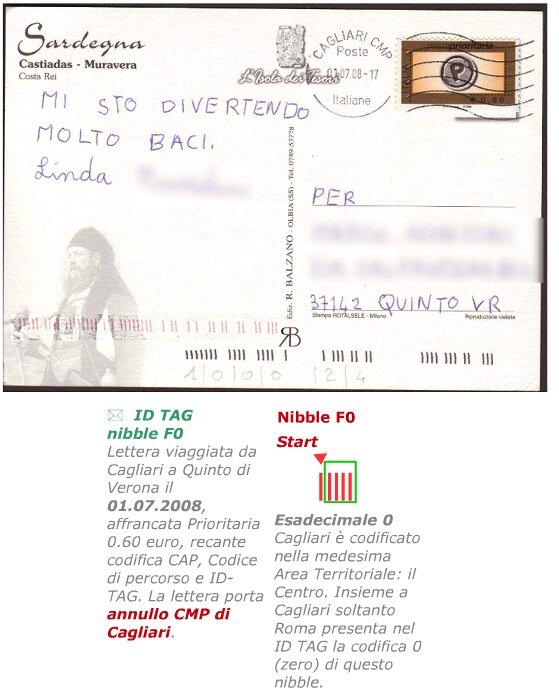 Sardegna
Castiadas - Muravera
Costa Rei
L'Isola dei Tesori
CAGLIARI CMP
Poste
01.07.08-17
Italiane
postaprioritaria
P
ITALIA
€ 0,60
MI STO DIVERTENDO
MOLTO BACI.
Linda
PER
37142 QUINTO VR
Ediz. R. BALZANO - OLBIA (SS) - Tel. 0789-53778
RB
Stampa ROTALSELE - Milano
Riproduzione vietata
1/0/0/0 /2/4
ID TAG
nibble F0
Lettera viaggiata da
Cagliari a Quinto di
Verona il
01.07.2008,
affrancata Prioritaria
0.60 euro, recante
codifica CAP, Codice
di percorso e ID-
TAG. La lettera porta
annullo CMP di
Cagliari.
Nibble F0
Start
Esadecimale 0
Cagliari è codificato
nella medesima
Area Territoriale: il
Centro. Insieme a
Cagliari soltanto
Roma presenta nel
ID TAG la codifica 0
(zero) di questo
nibble.